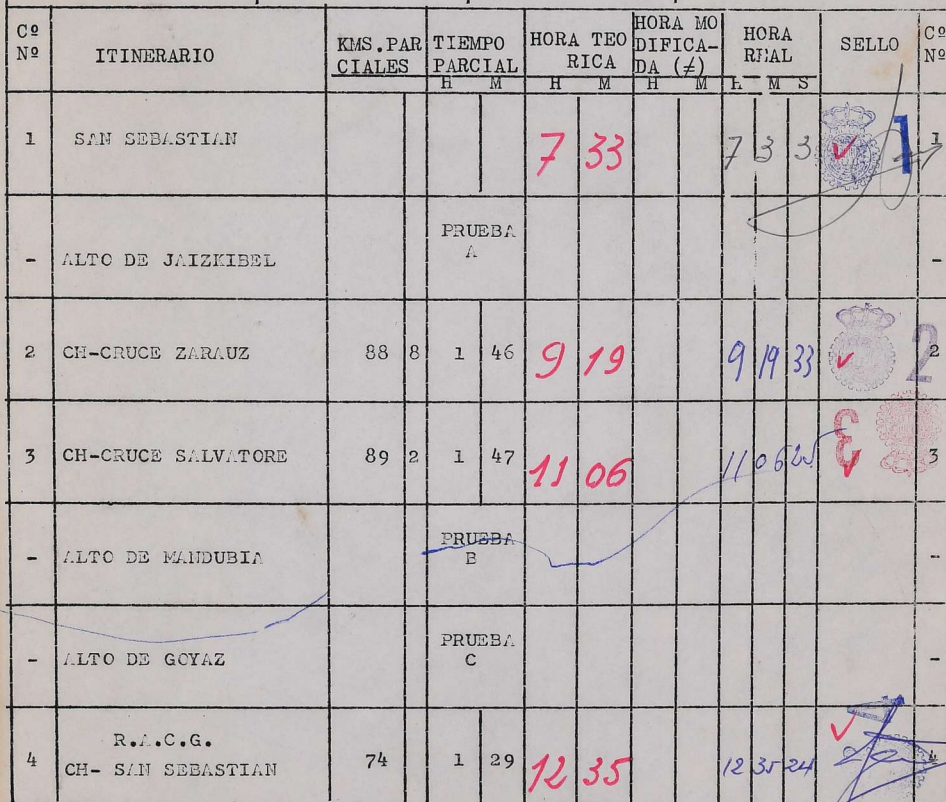 Cº Nº ITINERARIO KMS.PAR CIALES TIEMPO PARCIAL HORA TEO RICA HORA MO DIFICA- DA (≠) HORA REAL SELLO Cº Nº
H M H M H M H M S
1 SAN SEBASTIAN 7 33 7 3 3 1 1
- ALTO DE JAIZKIBEL PRUEBA A -
2 CH-CRUCE ZARAUZ 88 8 1 46 9 19 9 19 33 2 2
3 CH-CRUCE SALVATORE 89 2 1 47 11 06 11 06 25 3 3
- ALTO DE MANDUBIA PRUEBA B -
- ALTO DE GOYAZ PRUEBA C -
4 R.A.C.G. CH- SAN SEBASTIAN 74 1 29 12 35 12 35 24 4